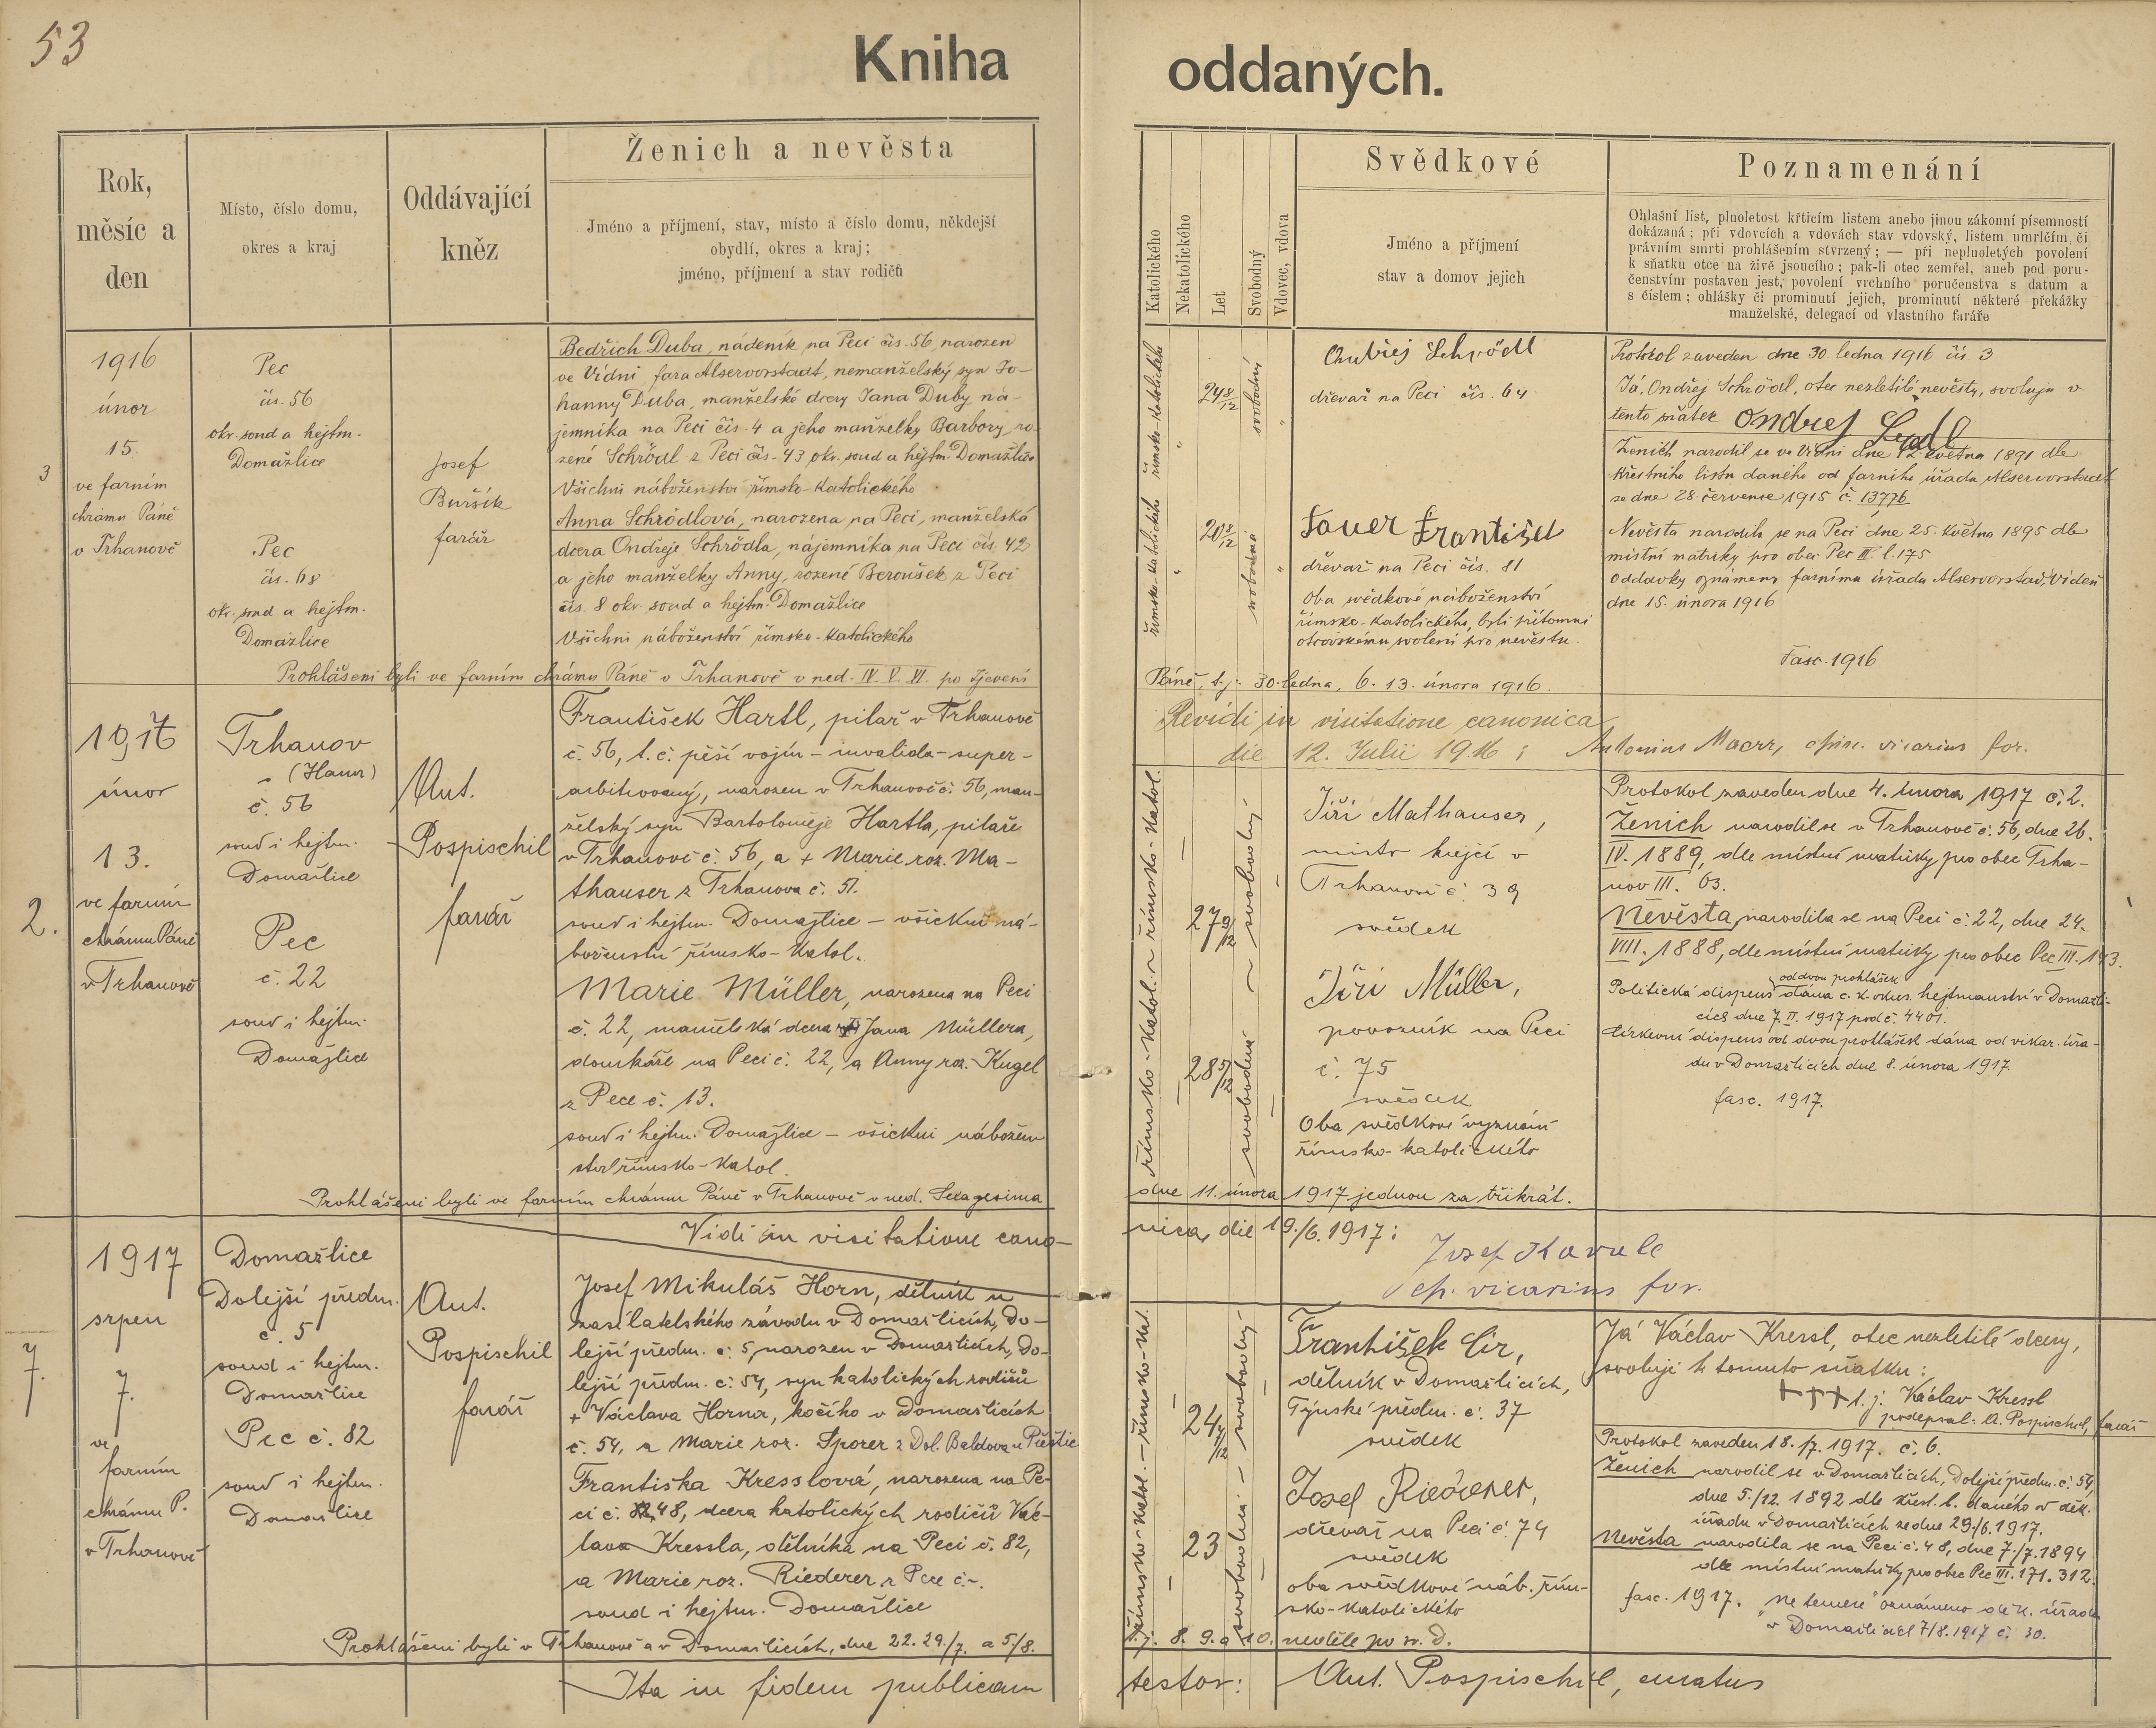 53
Kniha
oddaných.
Rok,
měsíc a
den
Místo, číslo domu,
okres a kraj
Oddávající
kněz
Ženich a nevěsta
Jméno a příjmení, stav, místo a číslo domu, někdejší
obydlí, okres a kraj;
jméno, příjmení a stav rodičů
Katolického
Nekatolického
Let
Svobodný
Vdovec, vdova
Svědkové
Jméno a příjmení
stav a domov jejich
Poznamenání
Ohlašní list, plnoletost křticím listem anebo jinou zákonní písemností
dokázaná; při vdovcích a vdovách stav vdovský, listem umrlčím či
právním smrti prohlášením stvrzený; — při neplnoletých povolení
k sňatku otce na živě jsoucího; pak-li otec zemřel, aneb pod poru-
čenstvím postaven jest, povolení vrchního poručenstva s datum a
s číslem; ohlášky či prominutí jejich, prominutí některé překážky
manželské, delegací od vlastního faráře
3
1916
únor
15.
ve farním
chrámu Páně
v Trhanově
Pec
čís. 56
okr. soud a hejtm.
Domažlice
Pec
čís. 68
okr. soud a hejtm.
Domažlice
Josef
Buršík
farář
Bedřich Duba, nádeník na Peci čís. 56, narozen
ve Vídni, fara Alservorstadt, nemanželský syn Jo-
hanny Duba, manželské dcery Jana Duby ná-
jemníka na Peci čís. 4 a jeho manželky Barbory, ro-
zené Schrödl z Peci čís. 43 okr. soud a hejtm. Domažlice
Všichni náboženství římsko-katolického
Anna Schrödlová, narozena na Peci, manželská
dcera Ondřeje Schrödla, nájemníka na Peci čís. 42
a jeho manželky Anny, rozené Beroušek z Peci
čís. 8 okr. soud a hejtm. Domažlice
Všichni náboženství římsko-katolického
Prohlášeni byli ve farním chrámu Páně v Trhanově v ned. IV. V. VI. po Zjevení
římsko-katolického
24 8/12
svobodný
římsko-katolického
20 8/12
svobodná
Schrödl
dřevař na Peci čís. 64
Sauer František
dřevař na Peci čís. 81
Oba svědkové náboženství
římsko-katolického, byli přítomni
otcovskému svolení pro nevěstu.
Páně, t. j. 30. ledna, 6. 13. února 1916.
Protokol zaveden dne 30. ledna 1916 čís. 3
Já, Ondřej Schrödl, otec nezletilé nevěsty, svoluji v
tento sňatek Ondrej
Ženich narodil se ve Vídni dne 12. května 1891 dle
křestního listu daného od farního úřadu Alservorstadt
ze dne 28. července 1915 č. 13776
Nevěsta narodila se na Peci dne 25. května 1895 dle
místní matriky pro obec Pec III. l. 175
Oddavky oznámeny farnímu úřadu Alservorstadt, Vídeň
dne 15. února 1916
Fasc. 1916
Revidi in visitatione canonica
die 12. Julii 1916: Antonius, episc. vicarius for.
2.
1917
únor
13.
ve farním
chrámu Páně
v Trhanově
Trhanov
č. 56
soud i hejtm.
Domažlice
Pec
č. 22
soud i hejtm.
Domažlice
Ant.
Pospischil
farář
František Hartl, pilař v Trhanově
č. 56, t. č. pěší vojín – invalida – super-
arbitrovaný, narozen v Trhanově č. 56, man-
želský syn Bartoloměje Hartla, pilaře
v Trhanově č. 56, a + Marie roz. Ma-
thauser z Trhanova č. 51.
soud i hejtm. Domažlice – všickni ná-
boženství římsko-katol.
Marie Müller, narozena na Peci
č. 22, manželská dcera Jana Müllera,
domkáře na Peci č. 22, a Anny roz. Kugel
z Pece č. 13.
soud i hejtm. Domažlice – všickni nábožen-
ství římsko-katol.
Prohlášeni byli ve farním chrámu Páně v Trhanově v ned. Sexagesima
římsko-katol. ~ římsko-katol.
27 9/12
28 5/12
svobodná ~ svobodný
Jiří Mathauser,
mistr krejčí v
Trhanově č. 39
svědek
Jiří Müller,
povozník na Peci
č. 75
svědek
Oba svědkové vyznání
římsko-katolického
dne 11. února 1917 jednou za třikrát.
Protokol zaveden dne 4. února 1917 č. 2.
Ženich narodil se v Trhanově č. 56, dne 26.
IV. 1889, dle místní matriky pro obec Trha-
nov III. 63.
Nevěsta narodila se na Peci č. 22, dne 24.
VIII. 1888, dle místní matriky pro obec Pec III. 143.
od dvou prohlášek
Politická dispens dána c. k. okres. hejtmanství v Domažli-
cích dne 7. II. 1917 pod č. 4401.
Církevní dispens od dvou prohlášek dána od vikar. úřa-
du v Domažlicích dne 8. února 1917.
fasc. 1917.
Vidi in visitatione cano-
nica, die 19./6. 1917:
Josef
ep. vicarius for.
7.
1917
srpen
7.
ve
farním
chrámu P.
v Trhanově
Domažlice
Dolejší předm.
č. 5
soud i hejtm.
Domažlice
Pec č. 82
soud i hejtm.
Domažlice
Ant.
Pospischil
farář
Josef Mikuláš Horn, dělník u
zasílatelského závodu v Domažlicích, Do-
lejší předm. č. 5, narozen v Domažlicích, Do-
lejší předm. č. 54, syn katolických rodičů
+ Václava Horna, kočího v Domažlicích
č. 54, a Marie roz. Sporer z Dol. Baldova u Přeštic
Františka Kresslová, narozena na Pe-
ci č. 48, dcera katolických rodičů Vác-
lava Kressla, dělníka na Peci č. 82,
a Marie roz. Riederer z Pece č. –.
soud i hejtm. Domažlice
Prohlášeni byli v Trhanově a v Domažlicích, dne 22. 29./7. a 5./8.
římsko-katol. – římsko-kat.
23
svobodná – svobodný
František Cir,
dělník v Domažlicích,
Týnské předm. č. 37
svědek
Josef Riederer,
dřevař na Peci č. 74
svědek
oba svědkové náb. řím-
sko-katolického
t. j. 8. 9. a 10. neděle po sv. D.
Já Václav Kressl, otec nezletilé dcery,
svoluji k tomuto sňatku:
+++ t. j. Václav Kressl
podepsal: A. Pospischil, farář
Protokol zaveden 18./7. 1917. č. 6.
Ženich narodil se v Domažlicích, Dolejší předm. č. 54,
dne 5./12. 1892 dle křest. l. daného od děk.
úřadu v Domažlicích ze dne 29./6. 1917.
Nevěsta narodila se na Peci č. 48, dne 7./7. 1894
dle místní matriky pro obec Pec III. 171. 312.
fasc. 1917. "Ne temere" oznámeno děk. úřadu
v Domažlicích 7/8. 1917 č. 30.
Ita in fidem publicam
testor: Ant. Pospischil, curatus